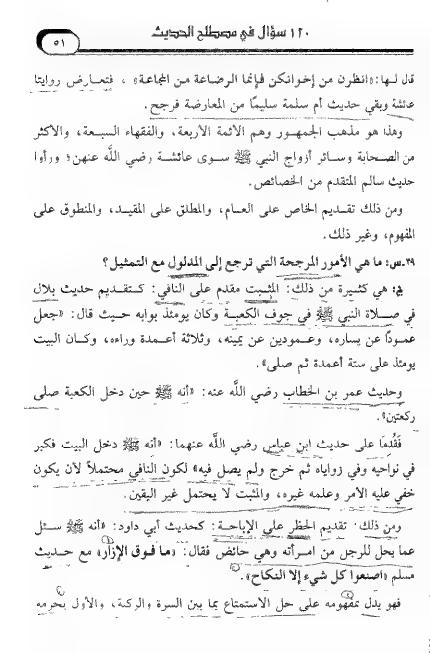 ١٢٠ سؤال في مصطلح الحديث
٥١
قال لها: «انظرن من إخوانكن فإنما الرضاعة من المجاعة» ، فتعارض روايتا
عائشة وبقي حديث أم سلمة سليمًا من المعارضة فرجح.
وهذا هو مذهب الجمهور وهم الأئمة الأربعة، والفقهاء السبعة، والأكثر
من الصحابة وسائر أزواج النبي ﷺ سوى عائشة رضي الله عنهن؛ ورأوا
حديث سالم المتقدم من الخصائص.
ومن ذلك تقديم الخاص على العام، والمطلق على المقيد، والمنطوق على
المفهوم، وغير ذلك.
٣٩ـ س: ما هي الأمور المرجحة التي ترجع إلى المدلول مع التمثيل؟
ج: هي كثيرة من ذلك: المثبت مقدم على النافي: كتقديم حديث بلال
في صلاة النبي ﷺ في جوف الكعبة وكان يومئذ بوابه حيث قال: «جعل
عمودًا عن يساره، وعمودين عن يمينه، وثلاثة أعمدة وراءه، وكان البيت
يومئذ على ستة أعمدة ثم صلى».
وحديث عمر بن الخطاب رضي الله عنه: «أنه ﷺ حين دخل الكعبة صلى
ركعتين».
فَقُدِّمَا على حديث ابن عباس رضي الله عنهما: «أنه ﷺ دخل البيت فكبر
في نواحيه وفي زواياه ثم خرج ولم يصل فيه» لكون النافي محتملاً لأن يكون
خفي عليه الأمر وعلمه غيره، والمثبت لا يحتمل غير اليقين.
ومن ذلك: تقديم الحظر على الإباحة: كحديث أبي داود: «أنه ﷺ سئل
عما يحل للرجل من امرأته وهي حائض فقال: «ما فوق الإزار» مع حديث
مسلم «اصنعوا كل شيء إلا النكاح».
فهو يدل بمفهومه على حل الاستمتاع بما بين السرة والركبة، والأول يحرمه